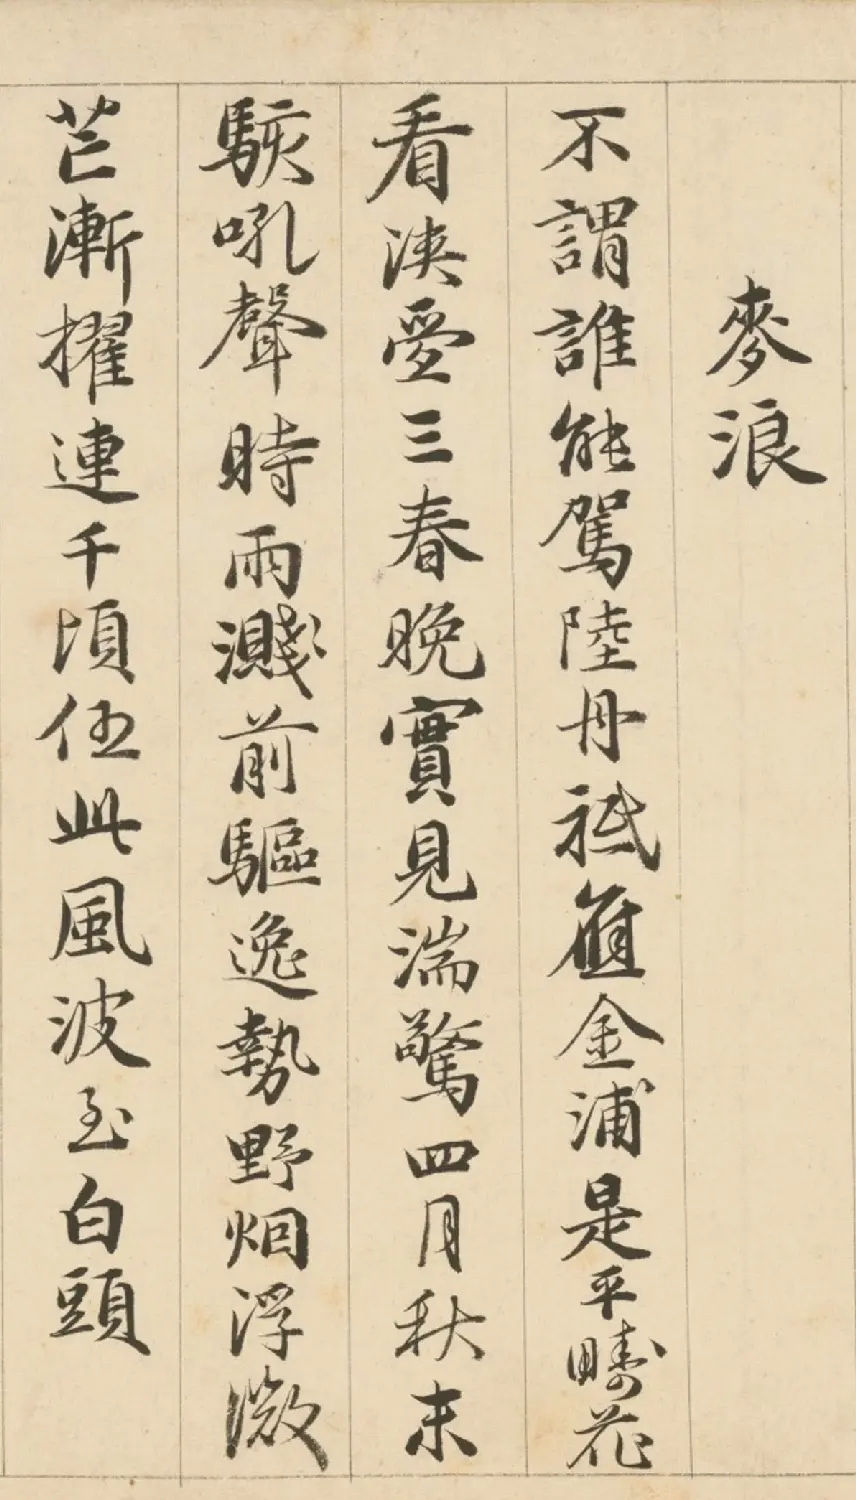 麥浪
不謂誰能駕陸舟祗應金浦是平疇花
看浹愛三春晚實見湍驚四月秋末
駭吼聲時雨濺前驅逸勢野烟浮微
芒漸擢連千頃任此風波至白頭